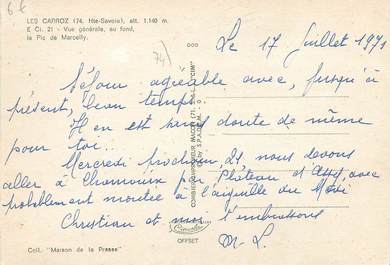 6 €
LES CARROZ (74, Hte-Savoie), alt. 1.140 m.
E Ci. 21 - Vue générale, au fond,
le Pic de Marcelly.
74)
Le 17 Juillet 1971
Séjour agréable avec, jusqu'à
présent, beau temps.
Il en est sans doute de même
pour toi.
Mercredi prochain, 21, nous devons
aller à Chamonix par Plateau d'Assy, avec
probablement montée à l'aiguille du Midi
Christian et moi t'embrassons
M-L.
Coll. "Maison de la Presse"
COMBIER IMPRIMEUR MACON (71)
"CIM"
OFFSET